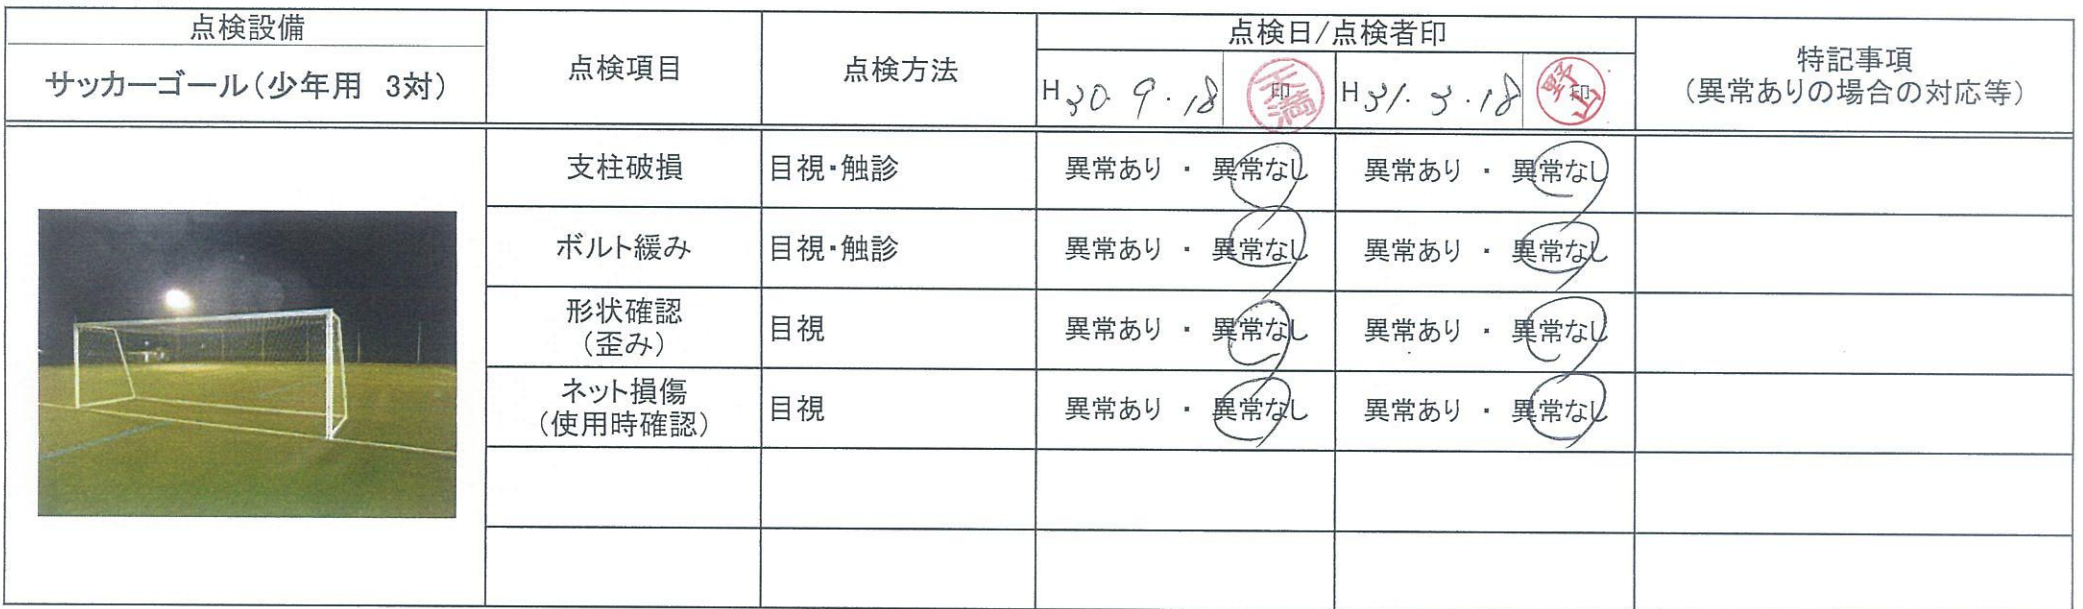 点検設備
点検項目
点検方法
点検日/点検者印
特記事項
(異常ありの場合の対応等)
サッカーゴール(少年用 3対)
H30.9.18 印
H31.3.18 印
支柱破損 目視・触診 異常あり ・ 異常なし 異常あり ・ 異常なし
ボルト緩み 目視・触診 異常あり ・ 異常なし 異常あり ・ 異常なし
形状確認
(歪み)
目視 異常あり ・ 異常なし 異常あり ・ 異常なし
ネット損傷
(使用時確認)
目視 異常あり ・ 異常なし 異常あり ・ 異常なし